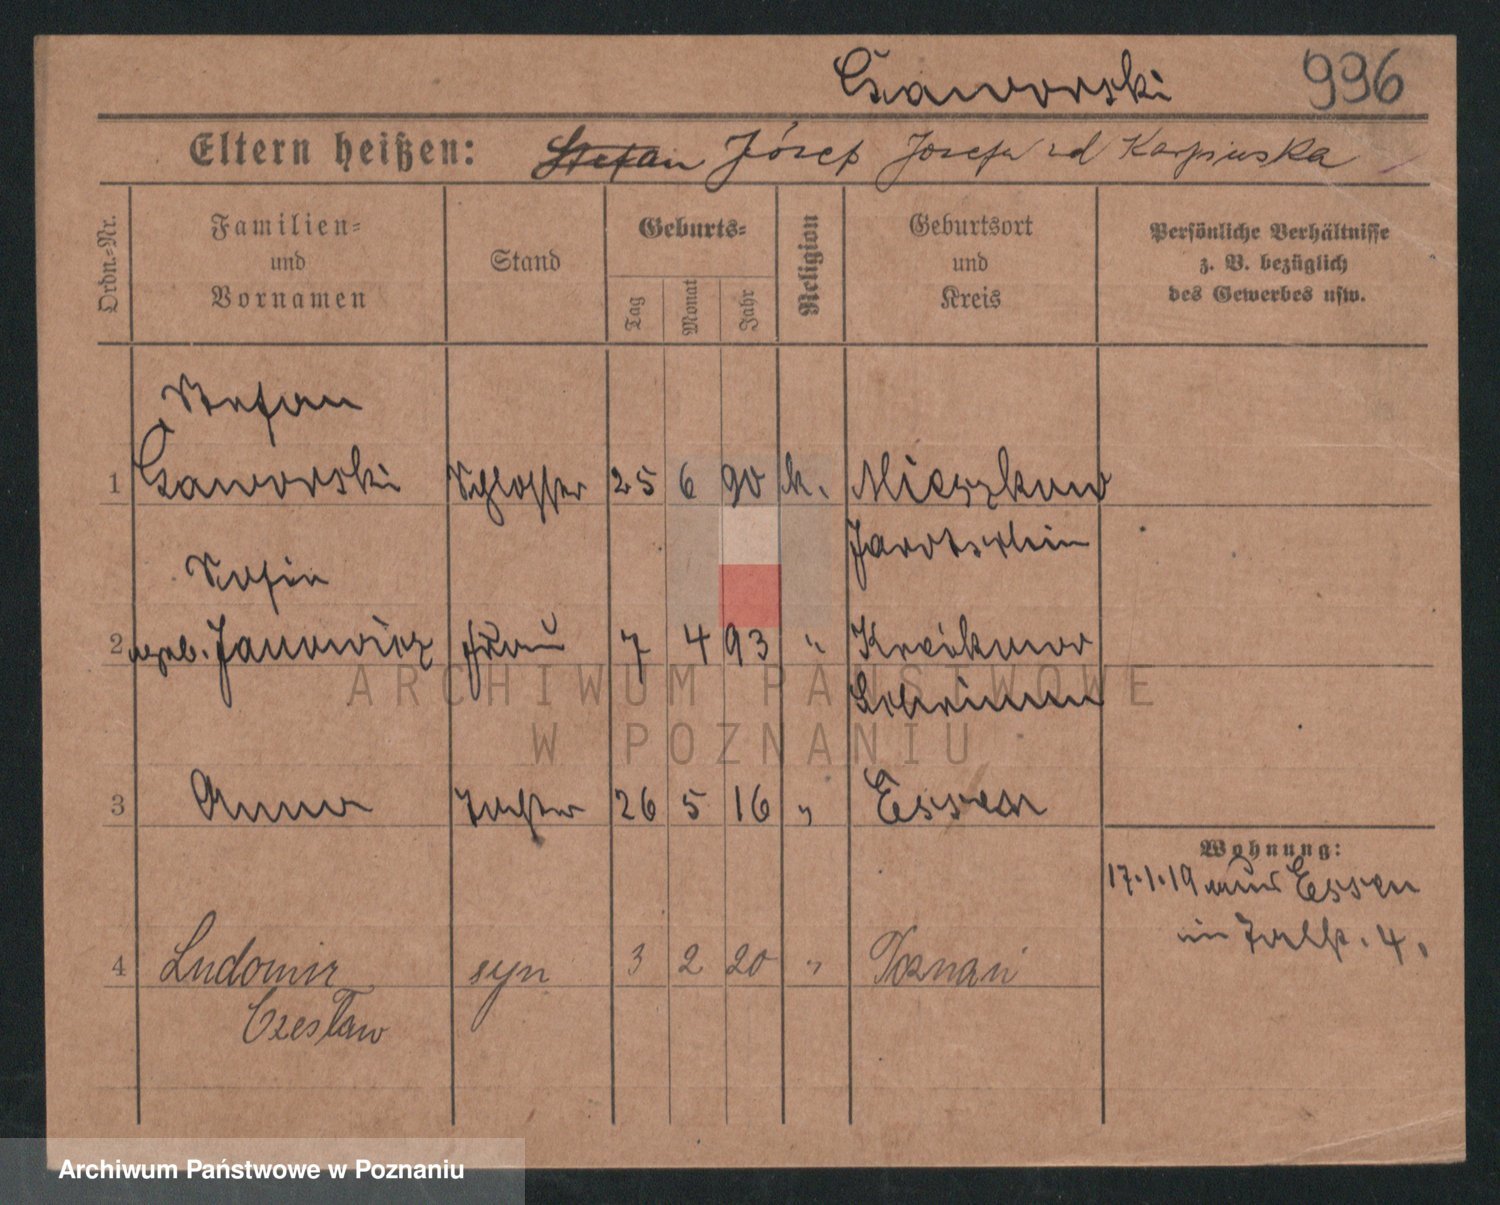 Czaworski 996
Eltern heißen: Stefan Józef Josefa zd Karpinska
Ordn.-Nr.
Familien=
und
Vornamen
Stand
Geburts=
Tag
Monat
Jahr
Religion
Geburtsort
und
Kreis
Persönliche Verhältnisse
z. B. bezüglich
des Gewerbes usw.
Stefan
1 Czaworski Schlosser 25 6 90 k. Mieszkow
Jarotschin
Sofia
2 geb. Janowicz Frau 7 4 93 "
Schrimm
3 Anna Tochter 26 5 16 " Essen
Wohnung:
17.1.19 aus Essen
4.
4 Ludomir syn 3 2 20 " Poznań
Czesław
ARCHIWUM PAŃSTWOWE
W POZNANIU
Archiwum Państwowe w Poznaniu